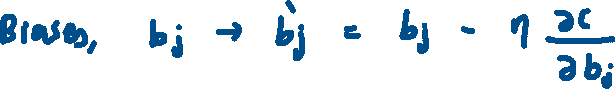 Biases, bj → b̀j = bj - η ∂C/∂bj